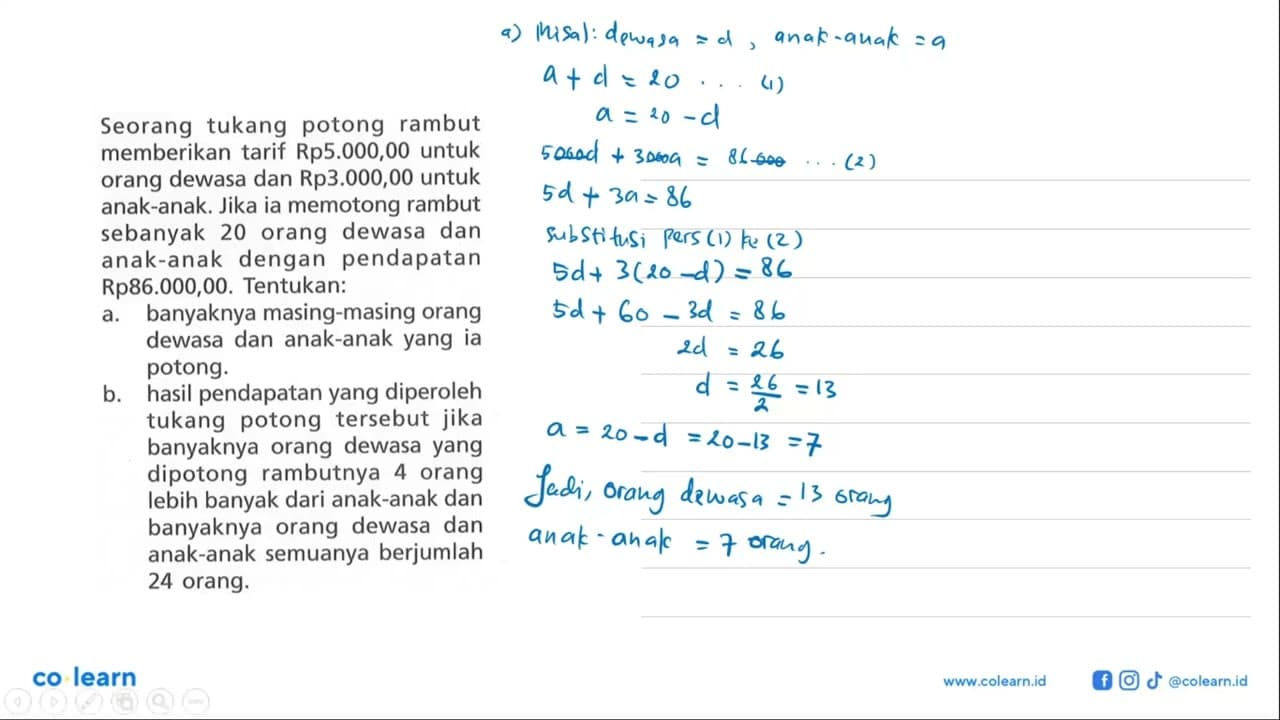 Seorang tukang potong rambut
memberikan tarif Rp5.000,00 untuk
orang dewasa dan Rp3.000,00 untuk
anak-anak. Jika ia memotong rambut
sebanyak 20 orang dewasa dan
anak-anak dengan pendapatan
Rp86.000,00. Tentukan:
a. banyaknya masing-masing orang
dewasa dan anak-anak yang ia
potong.
b. hasil pendapatan yang diperoleh
tukang potong tersebut jika
banyaknya orang dewasa yang
dipotong rambutnya 4 orang
lebih banyak dari anak-anak dan
banyaknya orang dewasa dan
anak-anak semuanya berjumlah
24 orang.
a) Misal: dewasa = d, anak-anak = a
a + d = 20 ... (1)
a = 20 - d
5000d + 3000a = 86000 ... (2)
5d + 3a = 86
substitusi pers (1) ke (2)
5d + 3(20 - d) = 86
5d + 60 - 3d = 86
2d = 26
d = 26/2 = 13
a = 20 - d = 20 - 13 = 7
Jadi, orang dewasa = 13 orang
anak-anak = 7 orang.
co learn
www.colearn.id
@colearn.id